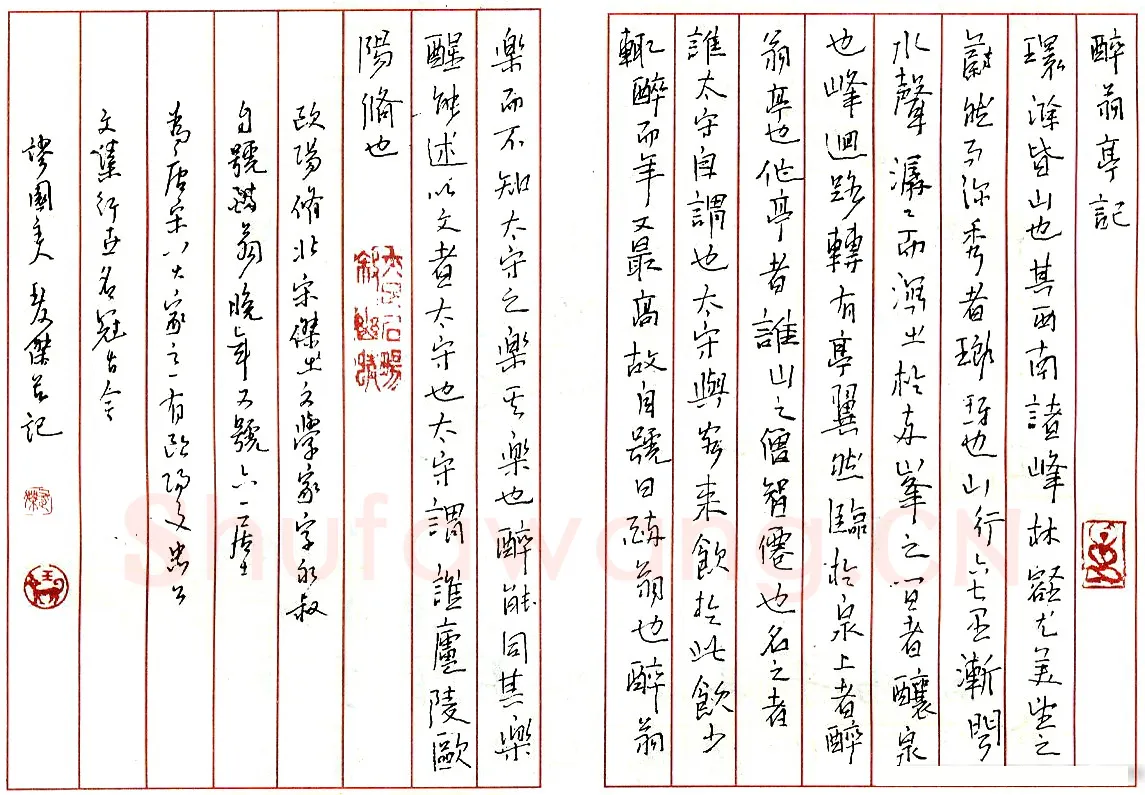 醉翁亭記
環滁皆山也其西南諸峰林壑尤美望之
蔚然而深秀者瑯琊也山行六七里漸聞
水聲潺々而瀉出於兩峯之間者釀泉
也峰迴路轉有亭翼然臨於泉上者醉
翁亭也作亭者誰山之僧智僊也名之者
誰太守自謂也太守與客来飲於此飲少
輒醉而年又最高故自號曰醉翁也醉翁
樂而不知太守之樂其樂也醉能同其樂
醒能述以文者太守也太守謂誰廬陵歐
陽脩也
歐陽脩北宋傑出文學家字永叔
自號醉翁晚年又號六一居士
為唐宋八大家之一有歐陽文忠公
文集行世名冠古今
記
Shufawang.CN